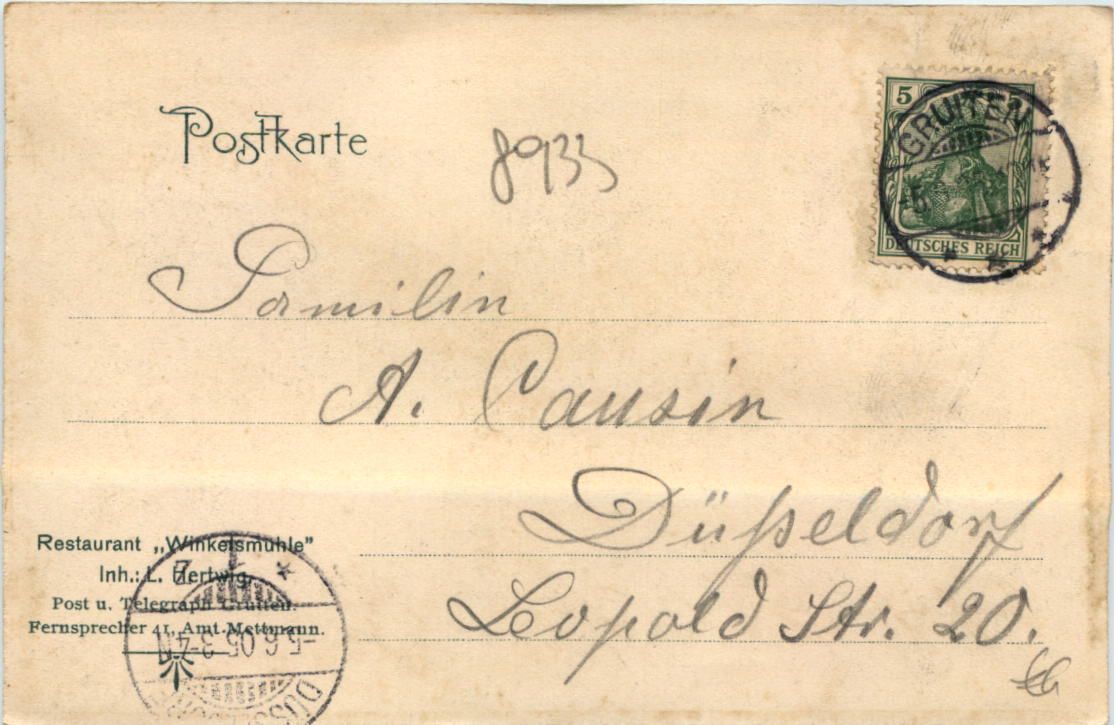 Postkarte
8933
5 5
GRUITEN
DEUTSCHES REICH
Familie
A. Causin
Düsseldorf
Leopold Str. 20.
Restaurant „Winkelsmühle”
Inh.: L. Hertwig.
Post u. Telegraph Gruiten.
Fernsprecher 41, Amt Mettmann.
-5.6.05.3-4N
DÜSSELDORF